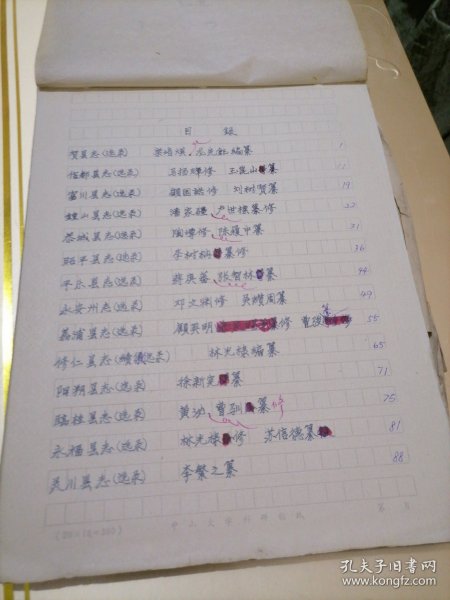 目 录
贺县志(选录) 梁培煐、龙先钰编纂 1
信都县志(选录) 玉昆山纂 11
富川县志(选录) 顾国诰修 刘树贤纂 19
钟山县志(选录) 潘宝疆、卢世标纂修 22
恭城县志(选录) 陶墫修 陆履中纂 31
昭平县志(选录) 李树楠纂修 36
平乐县志(选录) 蒋庚蕃、张智林纂 44
永安州志(选录) 49
荔浦县志(选录) 顾英明 修 曹 55
修仁县志(选录) 林光棣编纂 65
阳朔县志(选录) 徐新宽纂 71
临桂县志(选录) 黄泌、曹驯纂修 75
永福县志(选录) 林光棣修 苏信德纂 81
灵川县志(选录) 李繁之纂 88
(20×15=300) 中山大学 第 页
孔夫子旧书网
www.kongfz.com